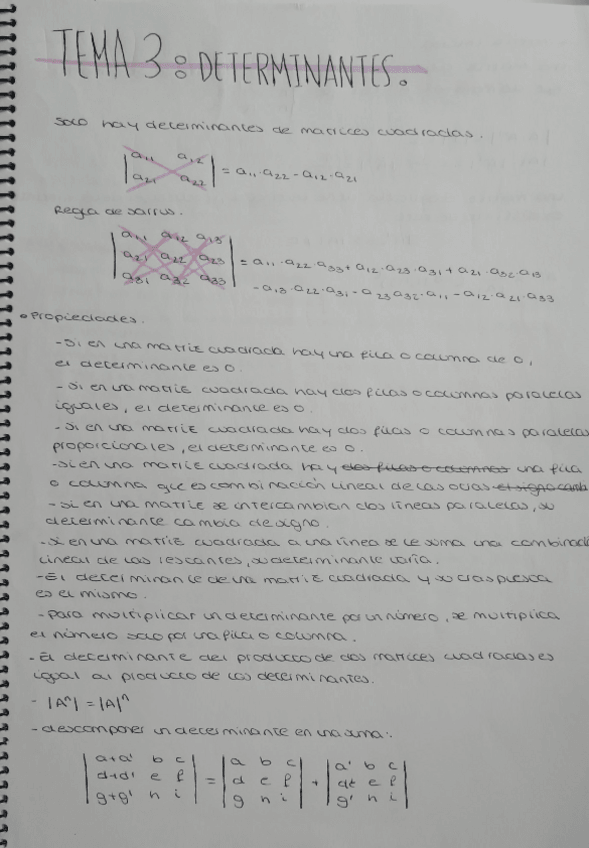 TEMA 3: DETERMINANTES.
Solo hay determinantes de matrices cuadradas.
| a₁₁ a₁₂ |
| a₂₁ a₂₂ | = a₁₁·a₂₂ - a₁₂·a₂₁
Regla de sarrus.
| a₁₁ a₁₂ a₁₃ |
| a₂₁ a₂₂ a₂₃ | = a₁₁·a₂₂·a₃₃ + a₁₂·a₂₃·a₃₁ + a₂₁·a₃₂·a₁₃
| a₃₁ a₃₂ a₃₃ | -a₁₃·a₂₂·a₃₁ - a₂₃a₃₂·a₁₁ - a₁₂·a₂₁·a₃₃
• Propiedades.
-Si en una matriz cuadrada hay una fila o columna de 0,
el determinante es 0.
-Si en una matriz cuadrada hay dos filas o columnas paralelas
iguales, el determinante es 0.
-Si en una matriz cuadrada hay dos filas o columnas paralelas
proporcionales, el determinante es 0.
-si en una matriz cuadrada hay dos filas o columnas una fila
o columna que es combinación lineal de las otras el signo camb
-si en una matriz se intercambian dos líneas paralelas, su
determinante cambia de signo.
-si en una matriz cuadrada a una línea se le suma una combinació
lineal de las restantes, su determinante varía.
-El determinante de una matriz cuadrada y su traspuesta
es el mismo.
-para multiplicar un determinante por un número, se multiplica
el número solo por una fila o columna.
-El determinante del producto de dos matrices cuadradas es
igual al producto de los determinantes.
- |Aⁿ| = |A|ⁿ
-descomponer un determinante en una suma:
| a+a' b c | | a b c | | a' b c |
| d+d' e f | = | d e f | + | d' e f |
| g+g' h i | | g h i | | g' h i |